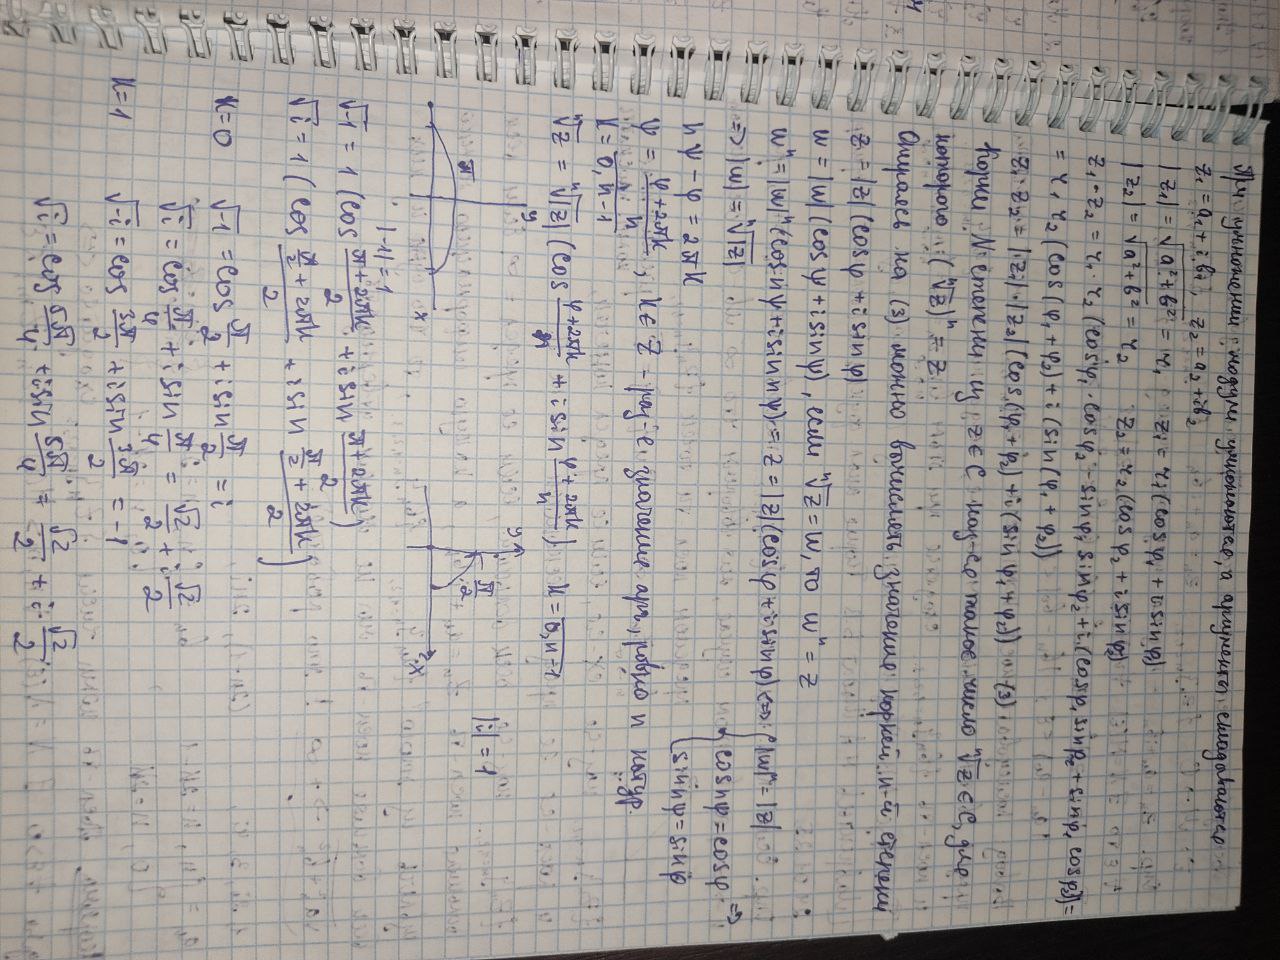 При умножении модули умножаются, а аргументы складываются
z₁ = a₁ + ib₁, z₂ = a₂ + ib₂
|z₁| = √a²+b² = r₁ z₁ = r₁(cosφ₁ + i sinφ₁)
|z₂| = √a²+b² = r₂ z₂ = r₂(cosφ₂ + i sinφ₂)
z₁·z₂ = r₁·r₂(cosφ₁·cosφ₂ - sinφ₁ sinφ₂ + i(cosφ₁ sinφ₂ + sinφ₁ cosφ₂)) =
= r₁ r₂ (cos(φ₁+φ₂) + i(sin(φ₁+φ₂))
z₁·z₂ = |z₁|·|z₂|(cos(φ₁+φ₂) + i(sin φ₁+φ₂)) (3)
Корнем N степени из z∈C наз-ся такое число ⁿ√z∈C, для
которого (ⁿ√z)ⁿ = z
Опираясь на (3) можно вычислять значение корней n-й степени
z = |z|(cosφ + i sinφ)
w = |w|(cosψ + i sinψ), если ⁿ√z = w, то wⁿ = z
wⁿ = |w|ⁿ(cos nψ + i sin nψ) = z = |z|(cosφ + i sinφ) ⟺ { |w|ⁿ = |z|
=> |w| = ⁿ√|z| cos nψ = cosφ =>
sin nψ = sinφ
nψ - φ = 2πk
ψ = (φ+2πk)/n, k∈Z - значение арг, равно n
k = 0,n-1
ⁿ√z = ⁿ√|z| (cos (φ+2πk)/n + i sin (φ+2πk)/n) k = 0,n-1
y
π
x
|-1| = 1
y
π/2
x
|i| = 1
√-1 = 1 (cos (π+2πk)/2 + i sin (π+2πk)/2)
√i = 1 (cos (π/2+2πk)/2 + i sin (π/2+2πk)/2)
k=0 √-1 = cos π/2 + i sin π/2 = i
√i = cos π/4 + i sin π/4 = √2/2 + i √2/2
k=1 √-i = cos 3π/2 + i sin 3π/2 = -1
√i = cos 5π/4 + i sin 5π/4 = √2/2 + i √2/2